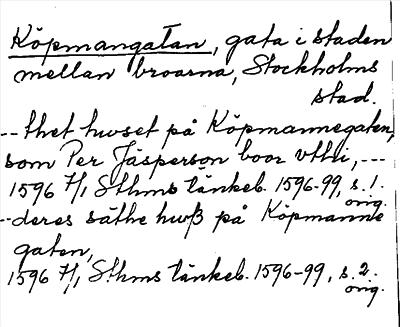 Köpmangatan, gata i staden
mellan broarna, Stockholms
stad.
-- thet huset på Köpmannegaten,
som Per Jäsperson boor vthi, ---
1596 7/1, Sthms tänkeb. 1596-99, s. 1.
orig.
-- deres säthe huß på Köpmanne
gaten,
1596 7/1, Sthms tänkeb. 1596-99, s. 2.
orig.